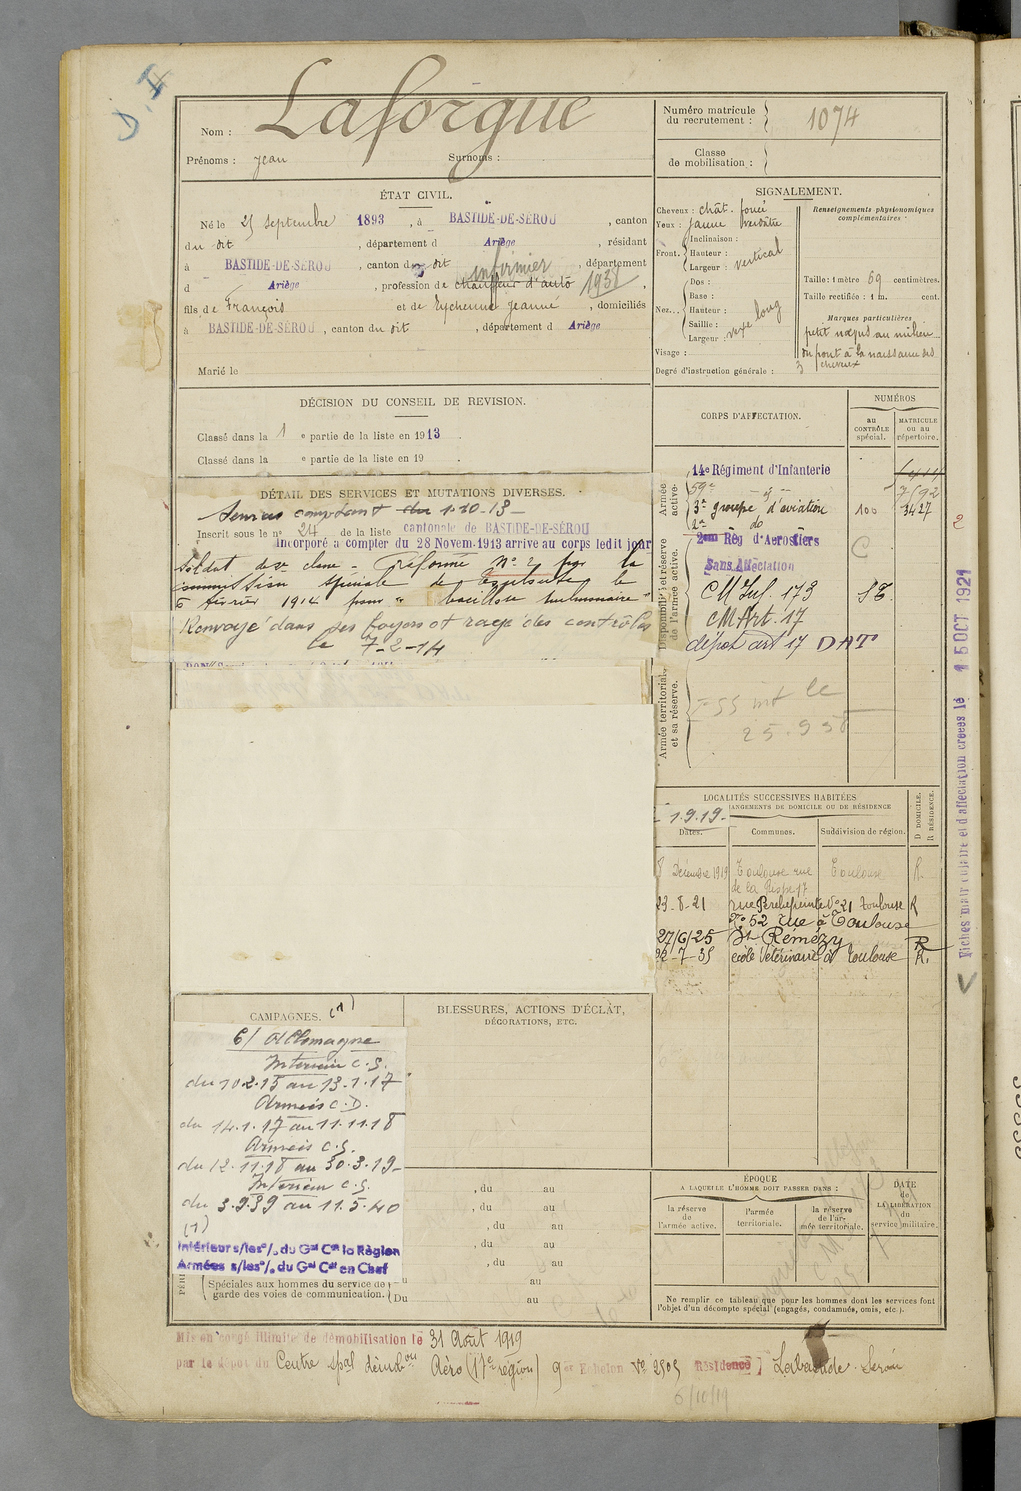 D. I
Nom : Laforgue
Prénoms : Jean Surnoms :
Numéro matricule du recrutement : 1074
Classe de mobilisation :
ÉTAT CIVIL.
Né le 25 septembre 1893, à BASTIDE-DE-SÉROU, canton
du dit, département d Ariège, résidant
à BASTIDE-DE-SÉROU, canton du dit, département
d Ariège, profession de chauffeur d'auto infirmier 1938,
fils de François et de Eychenne Jeanne, domiciliés
à BASTIDE-DE-SÉROU, canton du dit, département d Ariège
Marié le
SIGNALEMENT.
Cheveux : chât. foncé
Yeux : jaune verdâtre
Front. Inclinaison :
Hauteur : vertical
Largeur :
Nez... Dos :
Base :
Hauteur : long
Saillie :
Largeur : vexe
Visage :
Degré d'instruction générale : 3
Renseignements physionomiques complémentaires.
Taille : 1 mètre 69 centimètres.
Taille rectifiée : 1 m. cent.
Marques particulières
petit nœvus au milieu
du front à la naissance des
cheveux
DÉCISION DU CONSEIL DE REVISION.
Classé dans la 1e partie de la liste en 1913.
Classé dans la e partie de la liste en 19 .
DÉTAIL DES SERVICES ET MUTATIONS DIVERSES.
Services comptant du 1-10-13-
Inscrit sous le n° 24 de la liste cantonale de BASTIDE-DE-SÉROU
Incorporé à compter du 28 Novem. 1913 arrive au corps ledit jour
soldat de 2e classe - Réformé N° 2 par la
commission spéciale de Toulouse le
6 février 1914 pour "bacillose pulmonaire"
Renvoyé dans ses foyers et rayé des contrôles
le 7-2-14
CORPS D'AFFECTATION.
NUMÉROS
au CONTRÔLE spécial.
MATRICULE ou au répertoire.
Armée active.
14e Régiment d'Infanterie
59e - d° - 7592
3e groupe d'aviation 100 3427
1er do
Disponibilité et réserve de l'armée active.
2ème Rég d'Aérostiers C
Sans Affectation
CM Inf. 173 SE
CM Art. 17
dépot art 17 DAT
Armée territoriale et sa réserve.
25.9.58
2
LOCALITÉS SUCCESSIVES HABITÉES
ANGEMENTS DE DOMICILE OU DE RÉSIDENCE
1919-
Dates. Communes. Subdivision de région. D DOMICILE. R RÉSIDENCE.
8 Décembre 1919 Toulouse rue Toulouse R
23-8-21 rue Perchepeinte N° 21 Toulouse R
N° 52 rue à Toulouse
27/6/25 St Rémézy R
22-7-35 école Vétérinaire à Toulouse R.
Fiches matriculaire et d'affectation créées le 15 OCT 1921
CAMPAGNES. (1)
C/ Allemagne
Intérieur C.S.
du 10.2.15 au 13.1.17
Armées C.D.
du 14.1.17 au 11.11.18
Armées C.S.
du 12.11.18 au 30.3.19-
Intérieur C.S.
du 3.9.39 au 11.5.40
(1)
Intérieur s/les o/. du Gal Ct la Région
Armées s/les o/. du Gal Ct en Chef
BLESSURES, ACTIONS D'ÉCLAT,
DÉCORATIONS, ETC.
, du au
, du au
, du au
, du au
, du au
u au
Spéciales aux hommes du service de
garde des voies de communication. Du au
ÉPOQUE
A LAQUELLE L'HOMME DOIT PASSER DANS :
la réserve de l'armée active.
l'armée territoriale.
la réserve de l'armée territoriale.
DATE de LA LIBÉRATION du service militaire.
Ne remplir ce tableau que pour les hommes dont les services font
l'objet d'un décompte spécial (engagés, condamnés, omis, etc.).
Mis en congé illimité de démobilisation le 31 Août 1919
par le dépôt du Centre spal démobon Aéro (17e région) 9e Echelon N° 2505 Résidence Labastide-Sérou
6/10/19